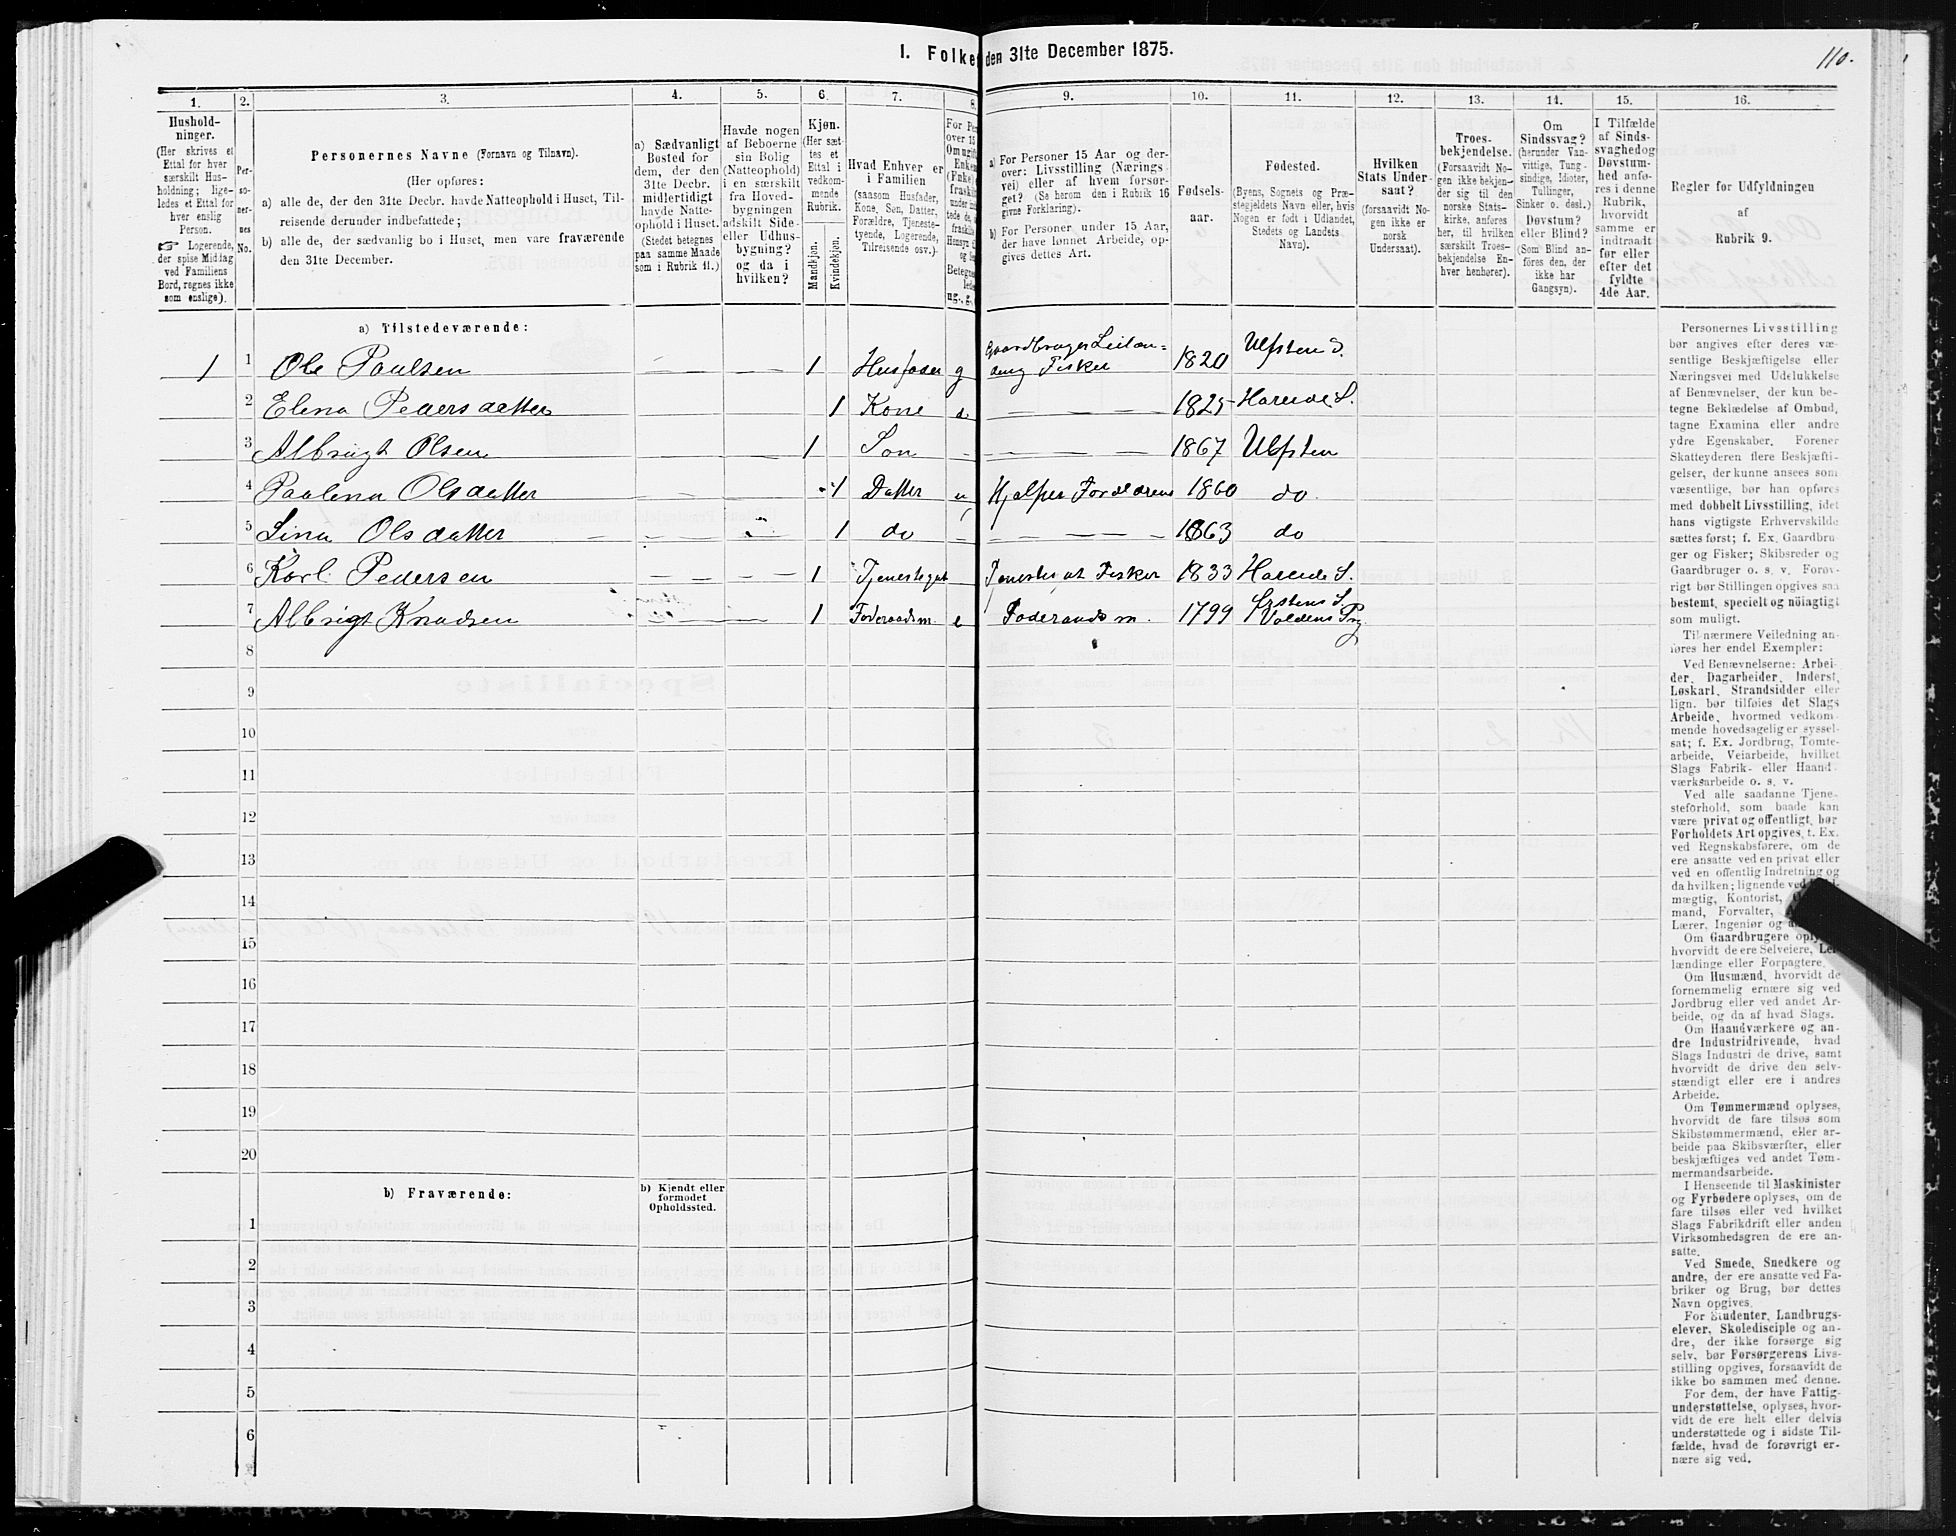 I. Folke den 31te December 1875.
110.
1. 2. 3. 4. 5. 6. 7. 8. 9. 10. 11. 12. 13. 14. 15. 16.
Hushold-
ninger.
(Her skrives et
Ettal for hver
særskilt Hus-
holdning; lige-
ledes et Ettal for
hver enslig
Person.
☞ Logerende,
der spise Middag
ved Familiens
Bord, regnes ikke
som enslige).
Per-
so-
ner-
nes
No.
Personernes Navne (Fornavn og Tilnavn).
(Her opføres:
a) alle de, der den 31te Decbr. havde Natteophold i Huset, Til-
reisende derunder indbefattede;
b) alle de, der sædvanlig bo i Huset, men vare fraværende
den 31te December.
a) Sædvanligt
Bosted for
dem, der den
31te Decbr.
midlertidigt
havde Natte-
ophold i Huset.
(Stedet betegnes
paa samme Maade
som i Rubrik 11.)
Havde nogen
af Beboerne
sin Bolig
(Natteophold)
i en særskilt
fra Hoved-
bygningen
adskilt Side-
eller Udhus-
bygning?
og da i
hvilken?
Kjøn.
(Her sæt-
tes et
Ettal i
vedkom-
mende
Rubrik.
Mandkjøn.
Kvindekjøn.
Hvad Enhver er
i Familien
(saasom Husfader,
Kone, Søn, Datter,
Forældre, Tjeneste-
tyende, Logerende,
Tilreisende osv.)
For Pe
over 15
Om ugift
Enke
(Fuke)
fraski
under in
tede de,
fraskil
Hensyn
og s
Betegne
led
ug., g.,
a) For Personer 15 Aar og der-
over: Livsstilling (Nærings-
vei) eller af hvem forsør-
get? (Se herom den i Rubrik 16
givne Forklaring).
b) For Personer under 15 Aar,
der have lønnet Arbeide, op-
gives dettes Art.
Fødsels-
aar.
Fødested.
(Byens, Sognets og Præ-
stegjeldets Navn eller, hvis
Nogen er født i Udlandet,
Stedets og Landets
Navn).
Hvilken
Stats Under-
saat?
(forsaavidt No-
gen ikke er
norsk
Undersaat).
Troes-
bekjendelse.
(Forsaavidt No-
gen ikke bekjen-
der sig til den
norske Stats-
kirke, anføres
her, til hvilken
særskilt Troes-
bekjendelse En-
hver henhører).
Om
Sindssvag?
(herunder Van-
vittige, Tung-
sindige, Idioter,
Tullinger,
Sinker o. desl.)
Døvstum?
eller Blind?
(Som Blind an-
føres den, der
ikke har
Gangsyn).
I Tilfælde
af Sinds-
svaghed og
Døvstum-
hed anfø-
res i denne
Rubrik,
hvorvidt
samme er
indtraadt
før eller
efter det
fyldte
4de Aar.
Regler for Udfyldningen
af
Rubrik 9.
a) Tilstedeværende:
1 1 Ole Paulsen 1 Husfader g Gaardbruger Leilæn=
ding Fisker 1820 Ulfsten S.
2 Elena Pedersdatter 1 Kone 1825 Hareide S.
3 Albrigt Olsen 1 Søn 1867 Ulfsten
4 Paulena Olsdatter 1 Datter Hjælper Forældrene 1860 do
5 Lina Olsdatter 1 do 1863 do
6 Karl Pedersen 1 Tjenestegut Tjenestegut Fisker 1833 Hareide S.
7 Albrigt Knudsen 1 Foderaadsm. e Foderaadsm. 1799 Ørstens S.
Voldens Pg
8
9
10
11
12
13
14
15
16
17
18
19
20
b) Fraværende: b) Kjendt eller
formodet
Opholdssted.
1
2
3
4
5
6
Personernes Livsstilling
bør angives efter deres væ-
sentlige Beskjæftigelse eller
Næringsvei med Udelukkelse
af Benævnelser, der kun be-
tegne Beklædelse af Ombud,
tagne Examina eller andre
ydre Egenskaber. Forener
Skatteyderen flere Beskjæfti-
gelser, der kunne ansees som
væsentlige, bør han opføres
med dobbelt Livsstilling, idet
hans vigtigste Erhvervskilde
sættes først; f. Ex. Gaardbru-
ger og Fisker; Skibsreder og
Gaardbruger o. s. v. Forøv-
rigt bør Stillingen opgives saa
bestemt, specielt og nöiagtigt
som muligt.
Til nærmere Veiledning an-
føres her endel Exempler:
Ved Benævnelserne: Arbei-
der, Dagarbeider, Inderst,
Løskarl, Strandsidder eller
lign. bør tilføies det Slags
Arbeide, hvormed vedkom-
mende hovedsagelig er syssel-
sat; f. Ex. Jordbrug, Tomte-
arbeide, Veiarbeide, hvilket
Slags Fabrik- eller Haand-
værksarbeide o. s. v.
Ved alle saadanne Tjene-
steforhold, som baade kan
være privat og offentligt, bør
Forholdets Art opgives, t. Ex.
ved Regnskabsførere, om de
ere ansatte ved en privat eller
ved en offentlig Indretning og
da hvilken; lignende ved
mægtig, Kontorist,
mand, Forvalter,
Lærer, Ingeniør og
Om Gaardbrugere
hvorvidt de ere Selveiere, Lei-
lændinge eller Forpagtere.
Om Husmænd, hvorvidt de
fornemmelig ernære sig ved
Jordbrug eller ved andet Ar-
beide, og da af hvad Slags.
Om Haandværkere og an-
dre Industridrivende, hvad
Slags Industri de drive, samt
hvorvidt de drive den selv-
stændigt eller ere i andres
Arbeide.
Om Tømmermænd oplyses,
hvorvidt de fare tilsøs som
Skibstømmermænd, eller ar-
beide paa Skibsværfter, eller
beskjæftiges ved andet Tøm-
mermandsarbeide.
I Henseende til Maskinister
og Fyrbødere oplyses, om de
fare tilsøs eller ved hvilket
Slags Fabrikdrift eller anden
Virksomhedsgren de ere an-
satte.
Ved Smede, Snedkere og
andre, der ere ansatte ved Fa-
briker og Brug, bør dettes
Navn opgives.
For Studenter, Landbrugs-
elever, Skoledisciple og an-
dre, der ikke forsørge sig
selv, bør Forsørgerens Livs-
stilling opgives, forsaavidt de
ikke bo sammen med denne.
For dem, der have Fattig-
understøttelse, oplyses, hvor-
vidt de ere helt eller delvis
understøttede og i sidste Til-
fælde, hvad de forøvrigt er-
nære sig ved.